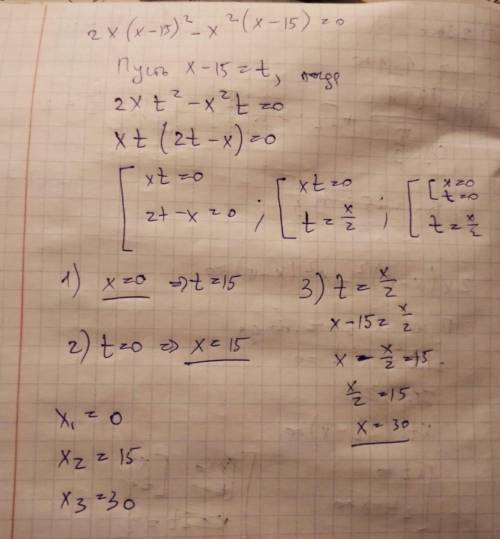 2x(x-15)² - x²(x-15) = 0
Пусть x-15 = t, тогда
2xt² - x²t = 0
xt(2t-x) = 0
[xt = 0 ; [xt = 0 ; [[x = 0
t = 0
2t - x = 0 t = x/2 t = x/2
1) x = 0 => t = 15
2) t = 0 => x = 15
3) t = x/2
x - 15 = x/2
x - x/2 = 15
x/2 = 15
x = 30
x₁ = 0
x₂ = 15
x₃ = 30